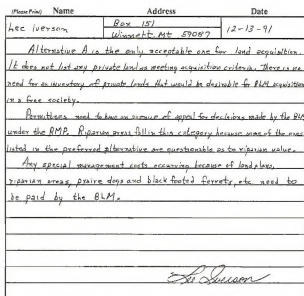 (Please Print) Name Address Date
Lee iverson Box 151 12-13-91
Winnett, Mt 59087
Alternative A is the only acceptable one for land acquisition.
It does not list any private land as meeting acquisition criteria. There is no
need for an inventory of private lands that would be desirable for BLM acquisition
in a free society.
Permittees need to have an avenue of appeal for decisions made by the BLM
under the RMP. Riparian areas fall in this category because some of the areas
listed in the preferred alternative are questionable as to riparian value.
Any special management costs occurring because of land plans,
riparian areas, prairie dogs and black footed ferrets, etc. need to
be paid by the BLM.
Lee Iverson